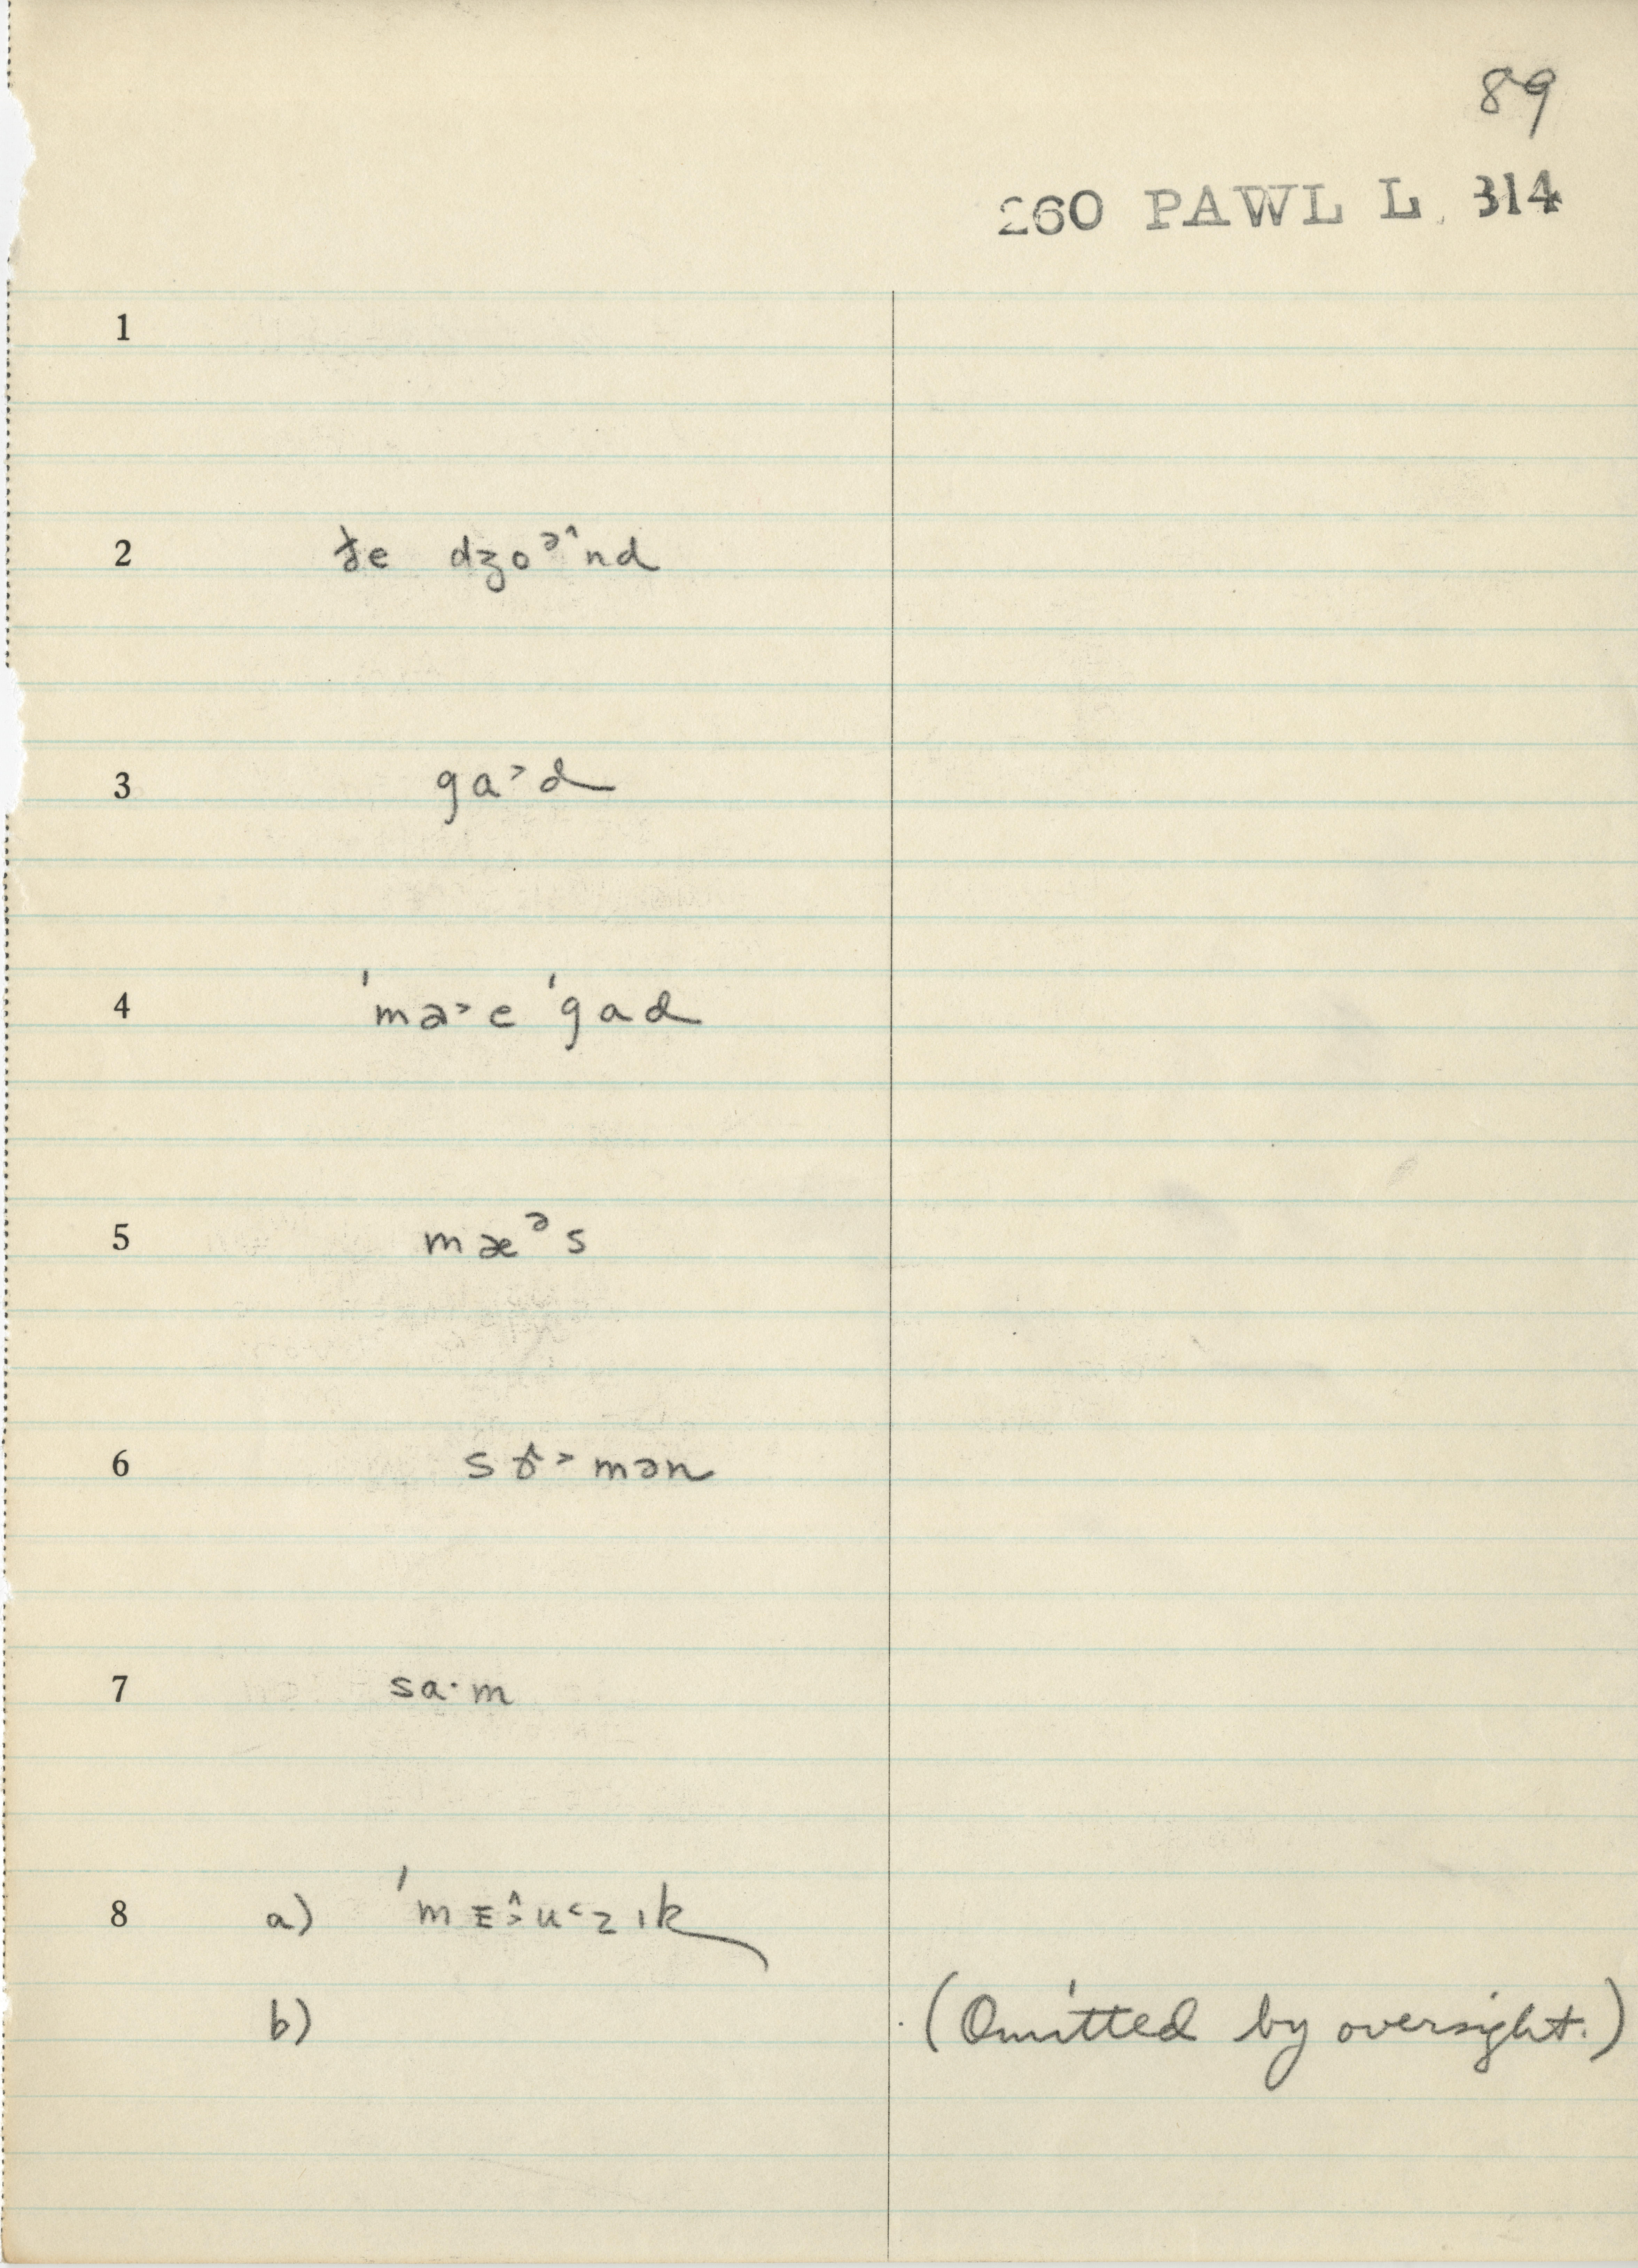 89
260 PAWL L. 314
1
2 ɟe dʒoᵊ^nd
3 ga˃d
4 ˈmə˃e ˈgad
5 mæᵊs
6 sɤ̂˃mən
7 sa·m
8 a) ˈmᴇ˃̂u˂zık
b) (Omitted by oversight.)